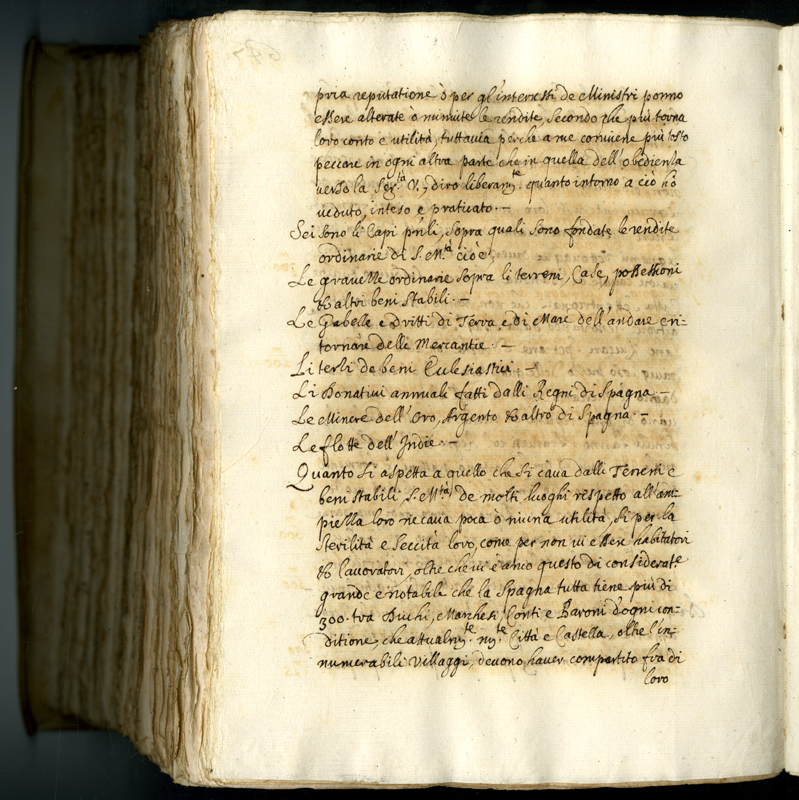 pria reputatione ò per gl'interessi de Ministri ponno
essere alterate ò minuite le rendite, secondo che più torna
loro conto e utilità, tuttavia perche a me conviene più tosto
peccare in ogni altra parte che in quella dell'obedienza
verso la Ser.tà V., diro liberam.te quanto intorno a ciò hò
veduto, inteso e praticato.—
Sei sono li Capi pñli, sopra quali sono fondate le rendite
ordinarie di S. M.tà cioè,
Le gravezze ordinarie sopra li terreni, Case, possessioni
& altri beni stabili.—
Le Gabelle e dritti di Terra e di Mare dell'andare e ri-
tornare delle Mercantie.—
Li terzi de beni Eclesiastici.—
Li Donativi annuali fatti dalli Regni di Spagna.—
Le Minere dell'Oro, Argento & altro di Spagna.—
Le flotte dell'Indie.—
Quanto si aspetta a quello che si cava dalli Terreni e
beni stabili S. M.tà de molti luoghi rispetto all'am-
piezza loro ne cava poca ò niuna utilità, si per la
sterilità e seccità loro, come per non vi essere habitatori
& lavoratori, oltre che vi è anco questo di considerat.e
grande e notabile che la Spagna tutta tiene più di
300. tra Duchi, Marchesi, Conti e Baroni d'ogni con-
ditione, che attualm.te Città e Castella, oltre l'in-
numerabili Villaggi, devono haver compartito fra di
loro